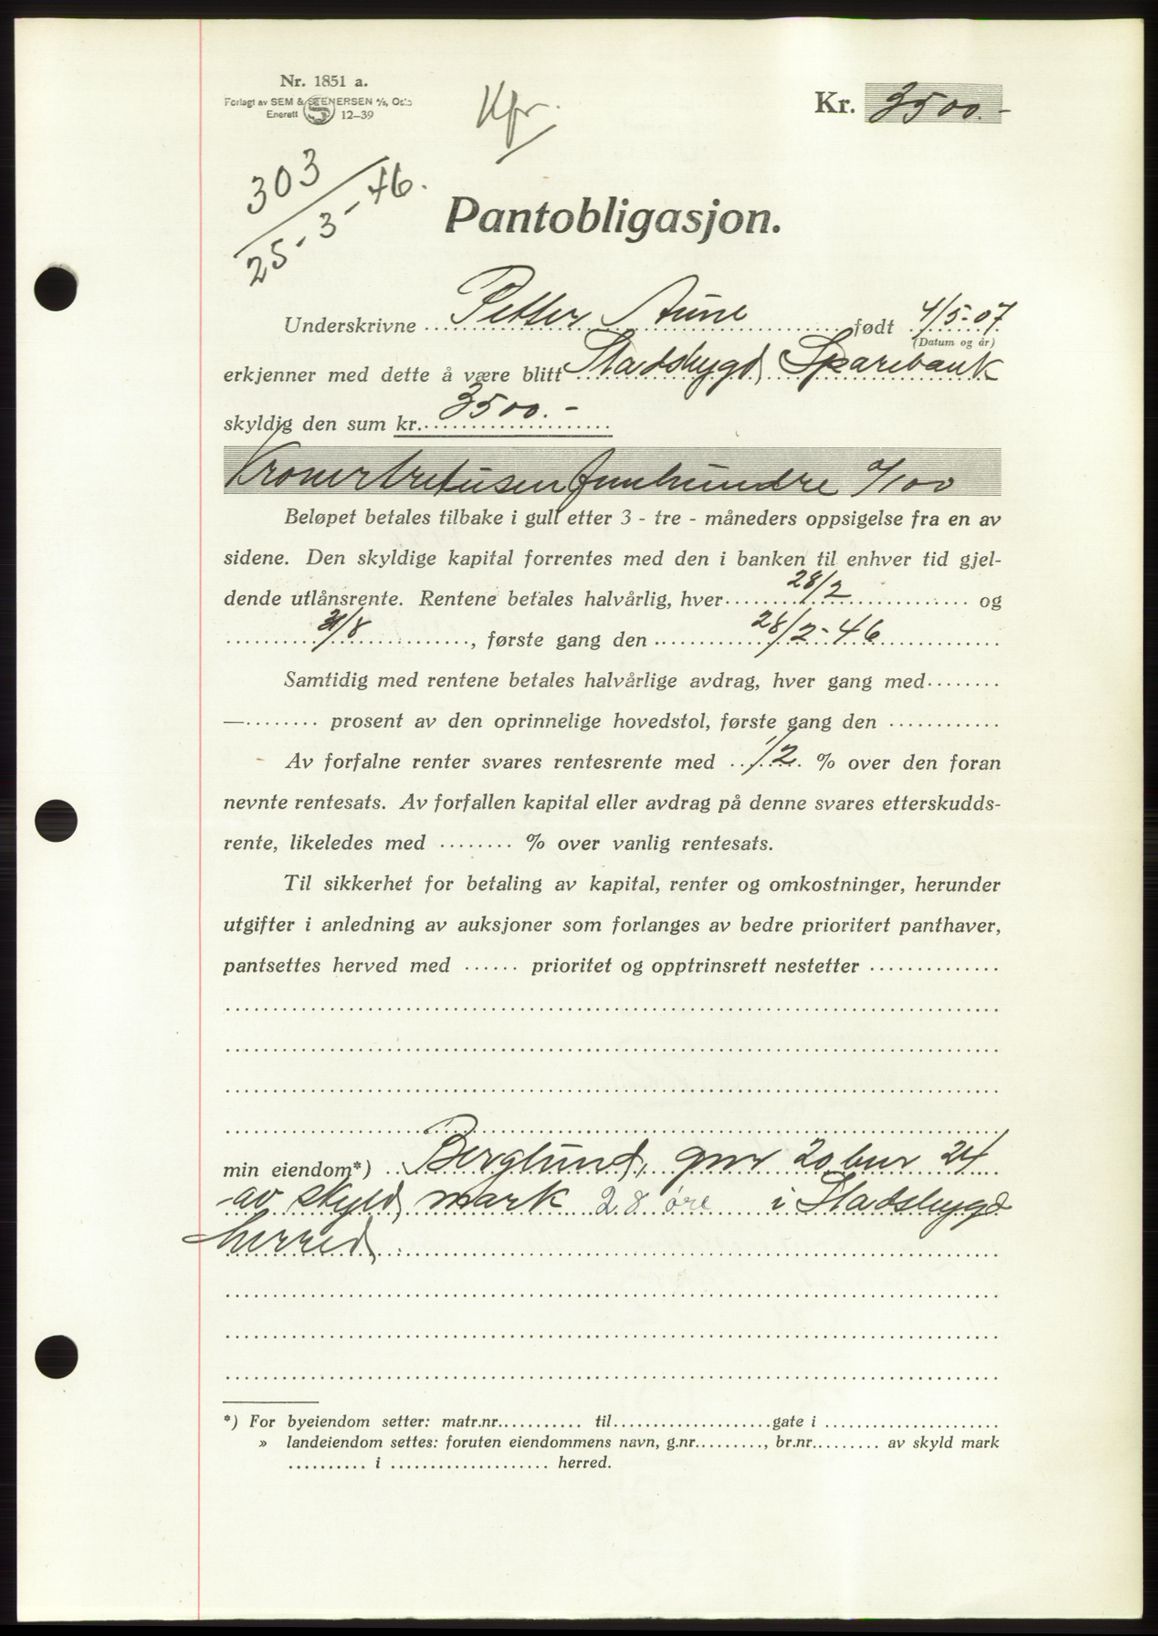 Nr. 1851 a.
Forlagt av SEM & STENERSEN A/S, Oslo
Enerett S 12-39
Kfr.
Kr. 3500.-
303
25-3-46.
Pantobligasjon.
Underskrivne Petter Aune født 4/5-07
(Datum og år)
erkjenner med dette å være blitt Stadsbygd Sparebank
skyldig den sum kr. 3500.-
Kroner tretusenfemhundre 0/100
Beløpet betales tilbake i gull etter 3 - tre - måneders oppsigelse fra en av
sidene. Den skyldige kapital forrentes med den i banken til enhver tid gjel-
dende utlånsrente. Rentene betales halvårlig, hver 28/2 og
31/8, første gang den 28/2-46
Samtidig med rentene betales halvårlige avdrag, hver gang med
— prosent av den oprinnelige hovedstol, første gang den
Av forfalne renter svares rentesrente med 1/2 % over den foran
nevnte rentesats. Av forfallen kapital eller avdrag på denne svares etterskudds-
rente, likeledes med ........ % over vanlig rentesats.
Til sikkerhet for betaling av kapital, renter og omkostninger, herunder
utgifter i anledning av auksjoner som forlanges av bedre prioritert panthaver,
pantsettes herved med ...... prioritet og opptrinsrett nestetter
min eiendom*) Berglund, gnr 20 bnr 24
av skyld mark 28 øre i Stadsbygd
herred.
*) For byeiendom setter: matr.nr........... til....................gate i ......................
» landeiendom settes: foruten eiendommens navn, g.nr........., br.nr......... av skyld mark
.......... i .................... herred.